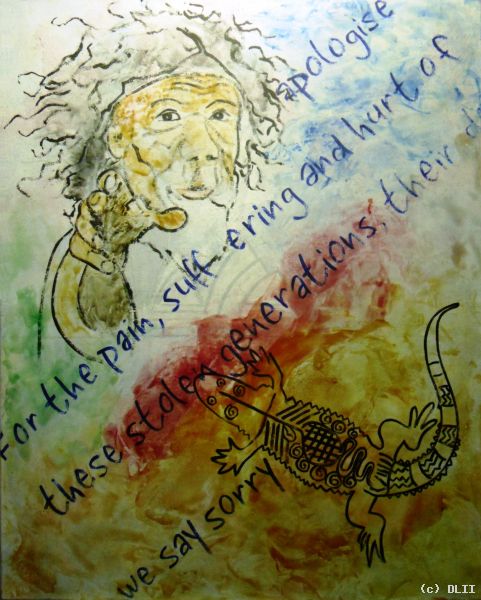 apologise
For the pain, suffering and hurt of
these stolen generations, their
we say sorry
(c) DLII